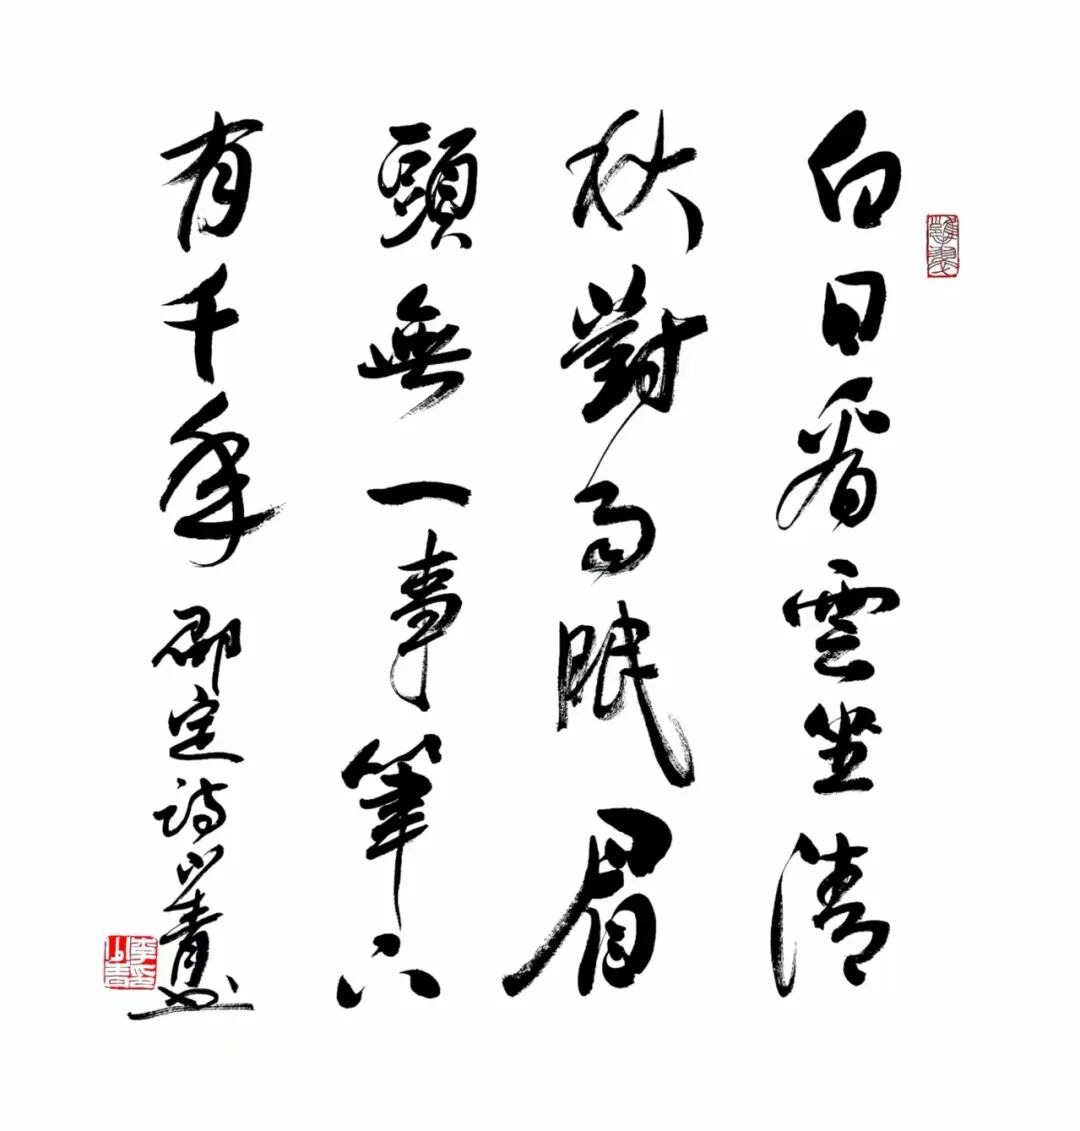 白日看雲坐清
秋對雨眠眉
頭無一事筆下
有千年 邵定詩 青書